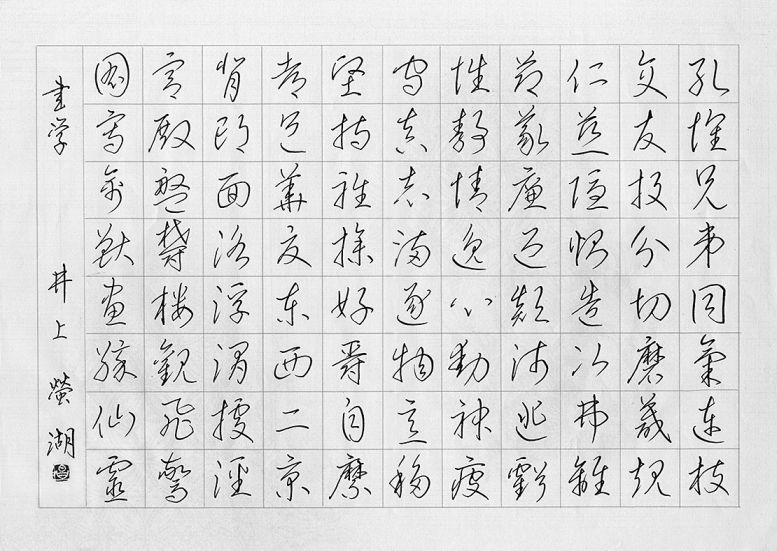 孔懷兄弟同氣連枝
交友投分切磨箴規
仁慈隱惻造次弗離
節義廉退顛沛匪虧
性静情逸心動神疲
守真志滿逐物意移
堅持雅操好爵自縻
都邑華夏東西二京
背邙面洛浮渭據涇
宮殿盤鬱楼觀飛驚
圖寫禽獸畫綵仙靈
書学 井上螢湖